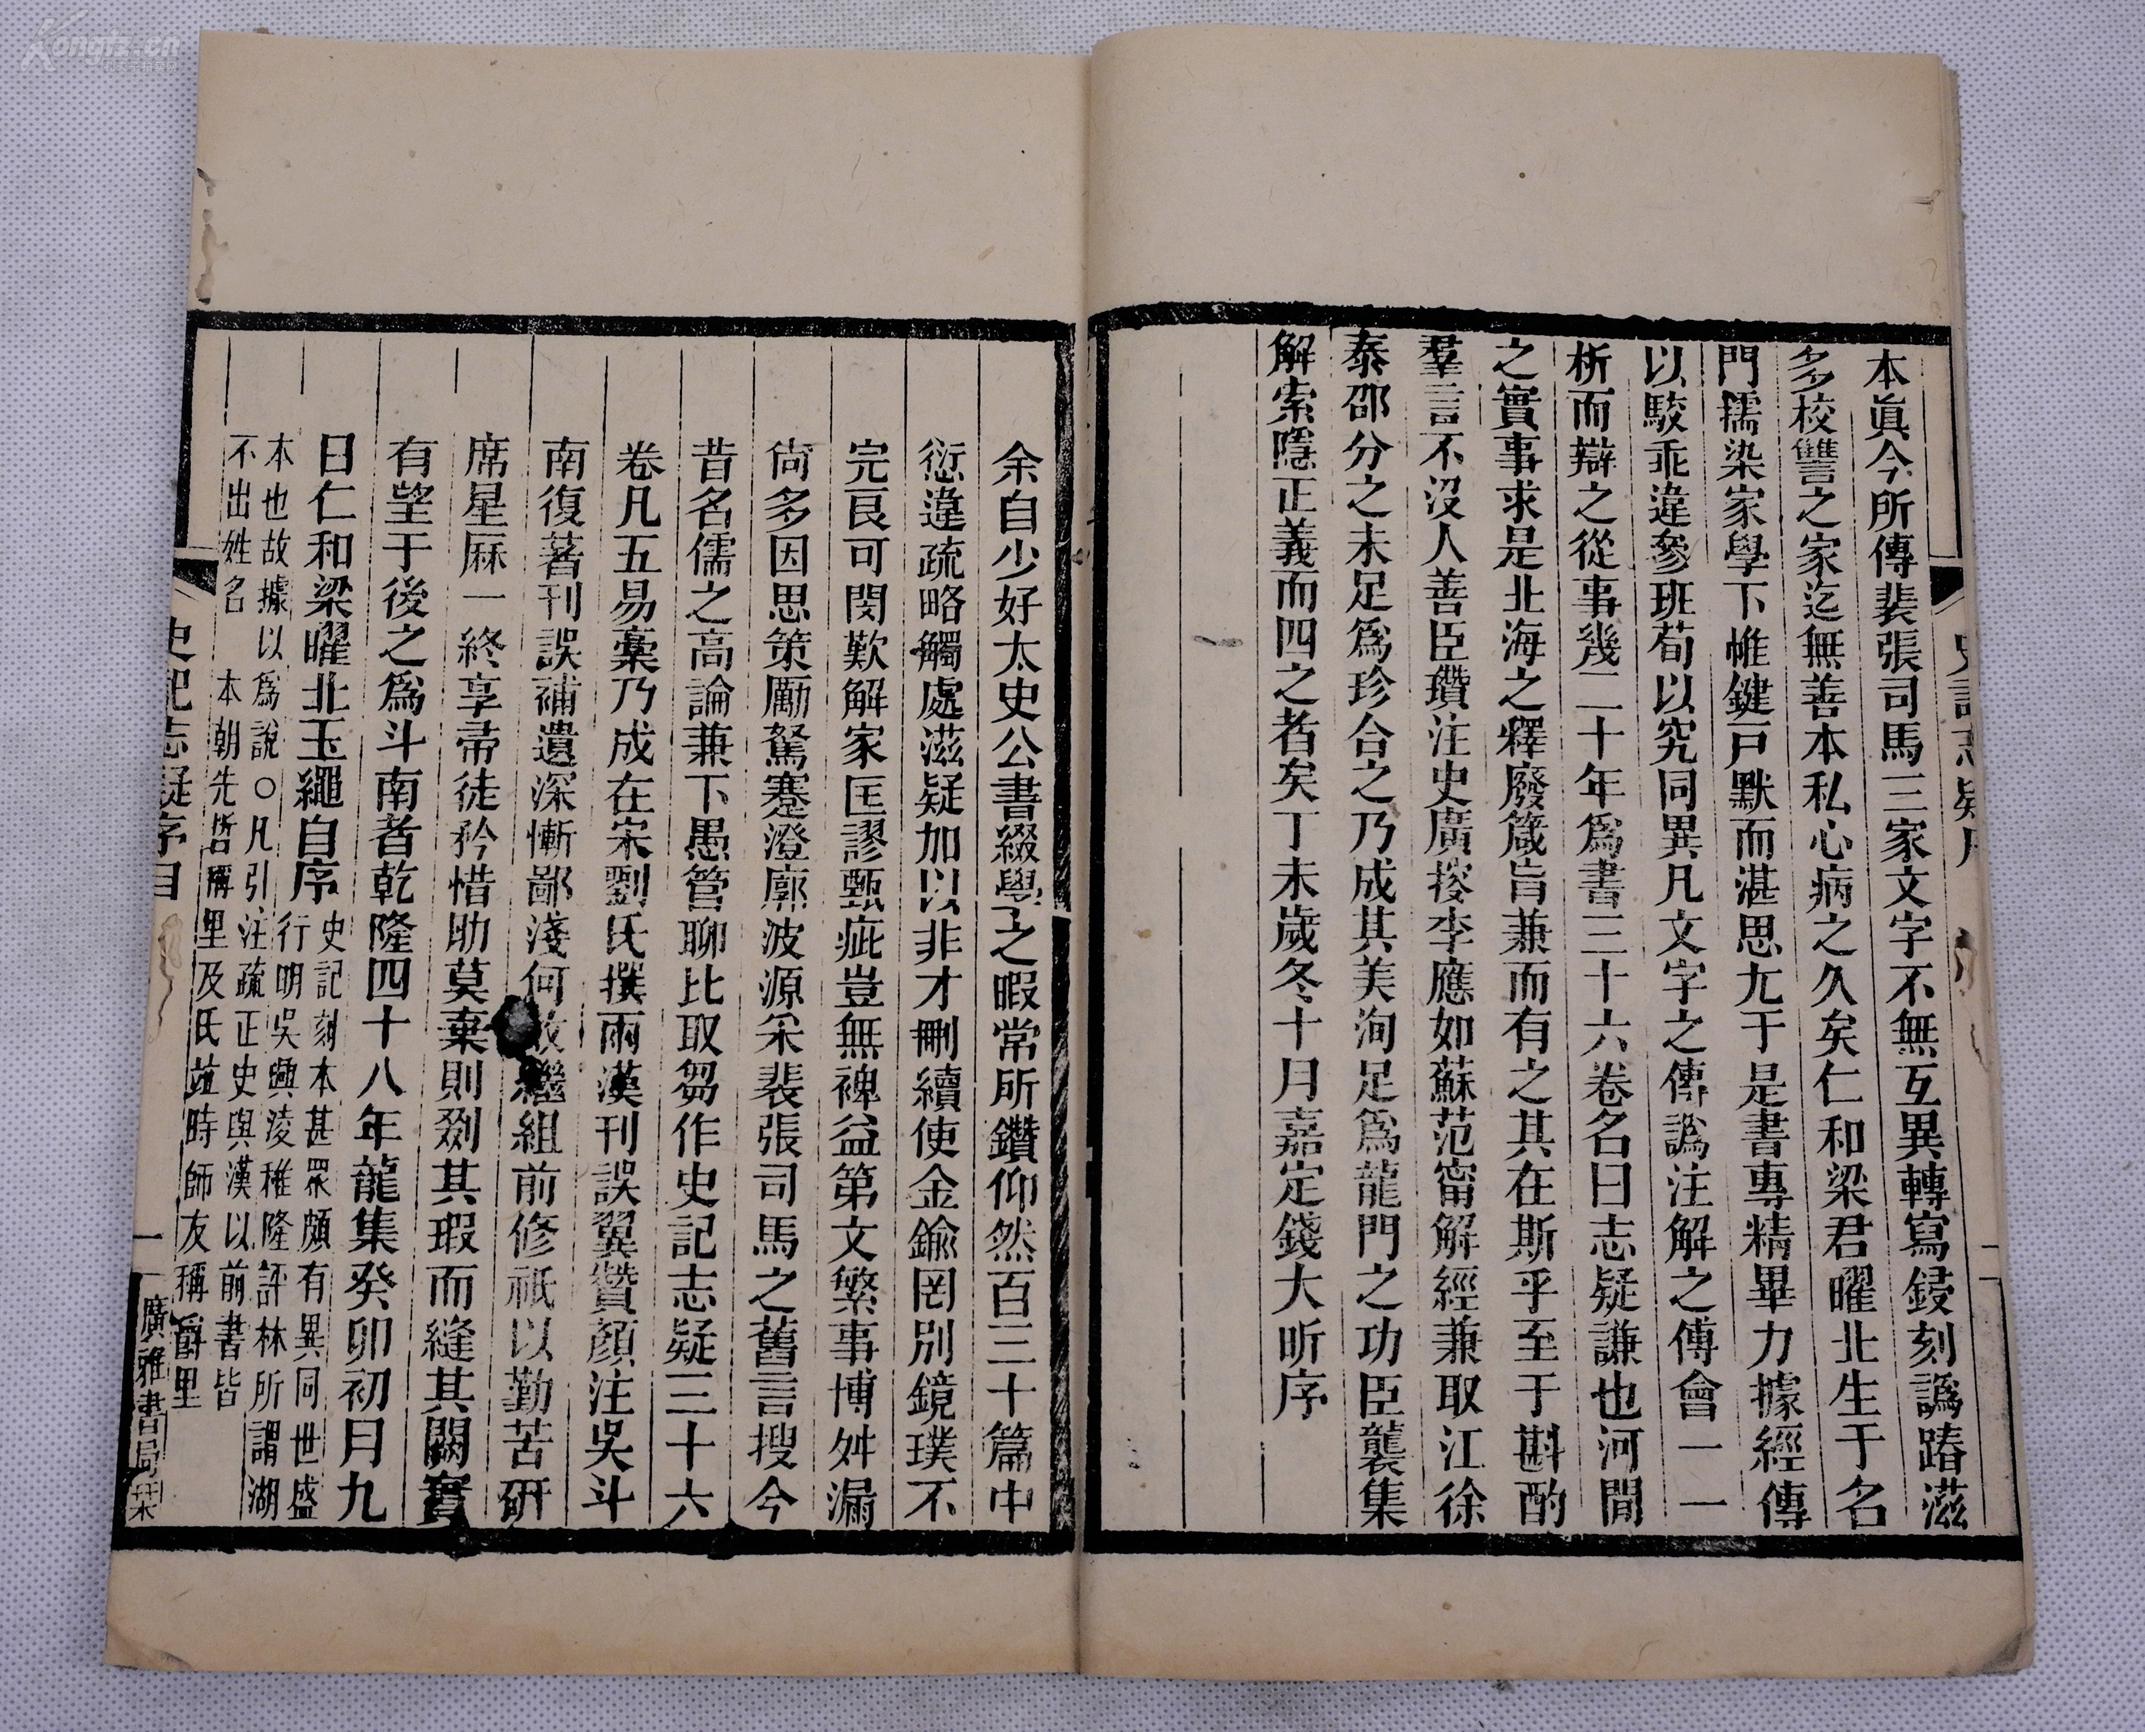 本眞今所傳裴張司馬三家文字不無互異轉寫鋟刻譌踳滋
多校讐之家迄無善本私心病之久矣仁和梁君曜北生于名
門擩染家學下帷鍵戸默而湛思尤于是書專精畢力據經傳
以駮乖違參班荀以究同異凡文字之傳譌注解之傅會一一
析而辯之從事幾二十年爲書三十六卷名曰志疑謙也河間
之實事求是北海之釋廢箴旨兼而有之其在斯乎至于斟酌
羣言不沒人善臣瓚注史廣搜李應如蘇范甯解經兼取江徐
泰邵分之未足爲珍合之乃成其美洵足爲龍門之功臣襲集
解索隱正義而四之者矣丁未歲冬十月嘉定錢大昕序
余自少好太史公書綴學之暇常所鑽仰然百三十篇中
愆違疏略觸處滋疑加以非才刪續使金鍮罔別鏡璞不
完良可閔歎解家匡謬甄疵豈無裨益第文繁事博舛漏
尙多因思策勵駑蹇澄廓波源采裴張司馬之舊言搜今
昔名儒之高論兼下愚管聊比取芻作史記志疑三十六
卷凡五易藁乃成在宋劉氏撰兩漢刊誤翼贊顏注吳斗
南復著刊誤補遺深慚鄙淺何敢繼組前修祇以勤苦研
席星厤一終享帚徒矜惜肋莫棄則剟其瑕而縫其闕實
有望于後之爲斗南者乾隆四十八年龍集癸卯初月九
日仁和梁曜北玉繩自序
史記刻本甚眾頗有異同世盛
行明吳興淩稚隆評林所謂湖
本也故據以爲說○凡引注疏正史與漢以前書皆
不出姓名 本朝先哲稱里及氏竝時師友稱爵里
史記志疑序目
一
廣雅書局栞
史記志疑序
二
Kongfz.cn